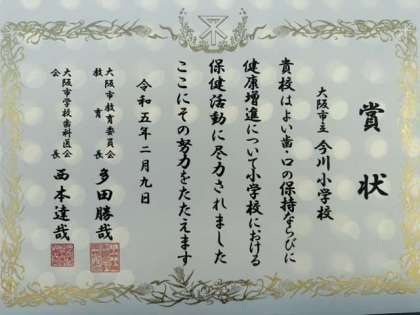 賞状
大阪市立 今川小学校
貴校はよい歯・口の保持ならびに
健康増進について小学校における
保健活動に尽力されました
ここにその努力をたたえます
令和五年二月九日
大阪市教育委員会
教育長 多田勝哉
大阪市学校歯科医会
会長 西本達哉